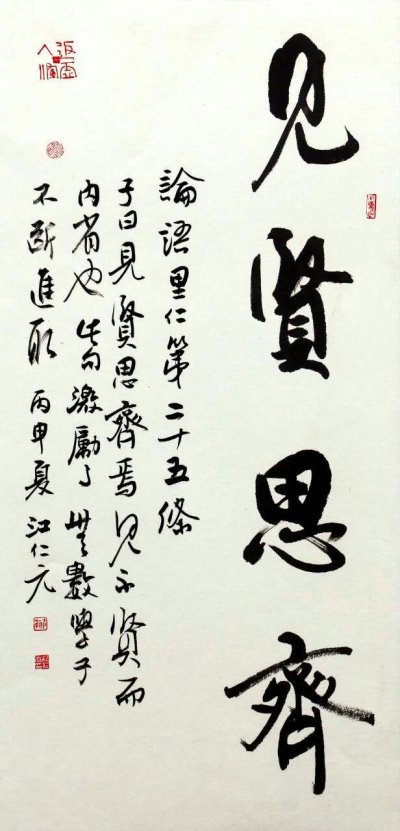 见賢思齊
論語里仁第二十五條
子曰見賢思齊焉见不賢而
内省也此句激勵了無數學子
不斷進取 丙申夏 江仁元